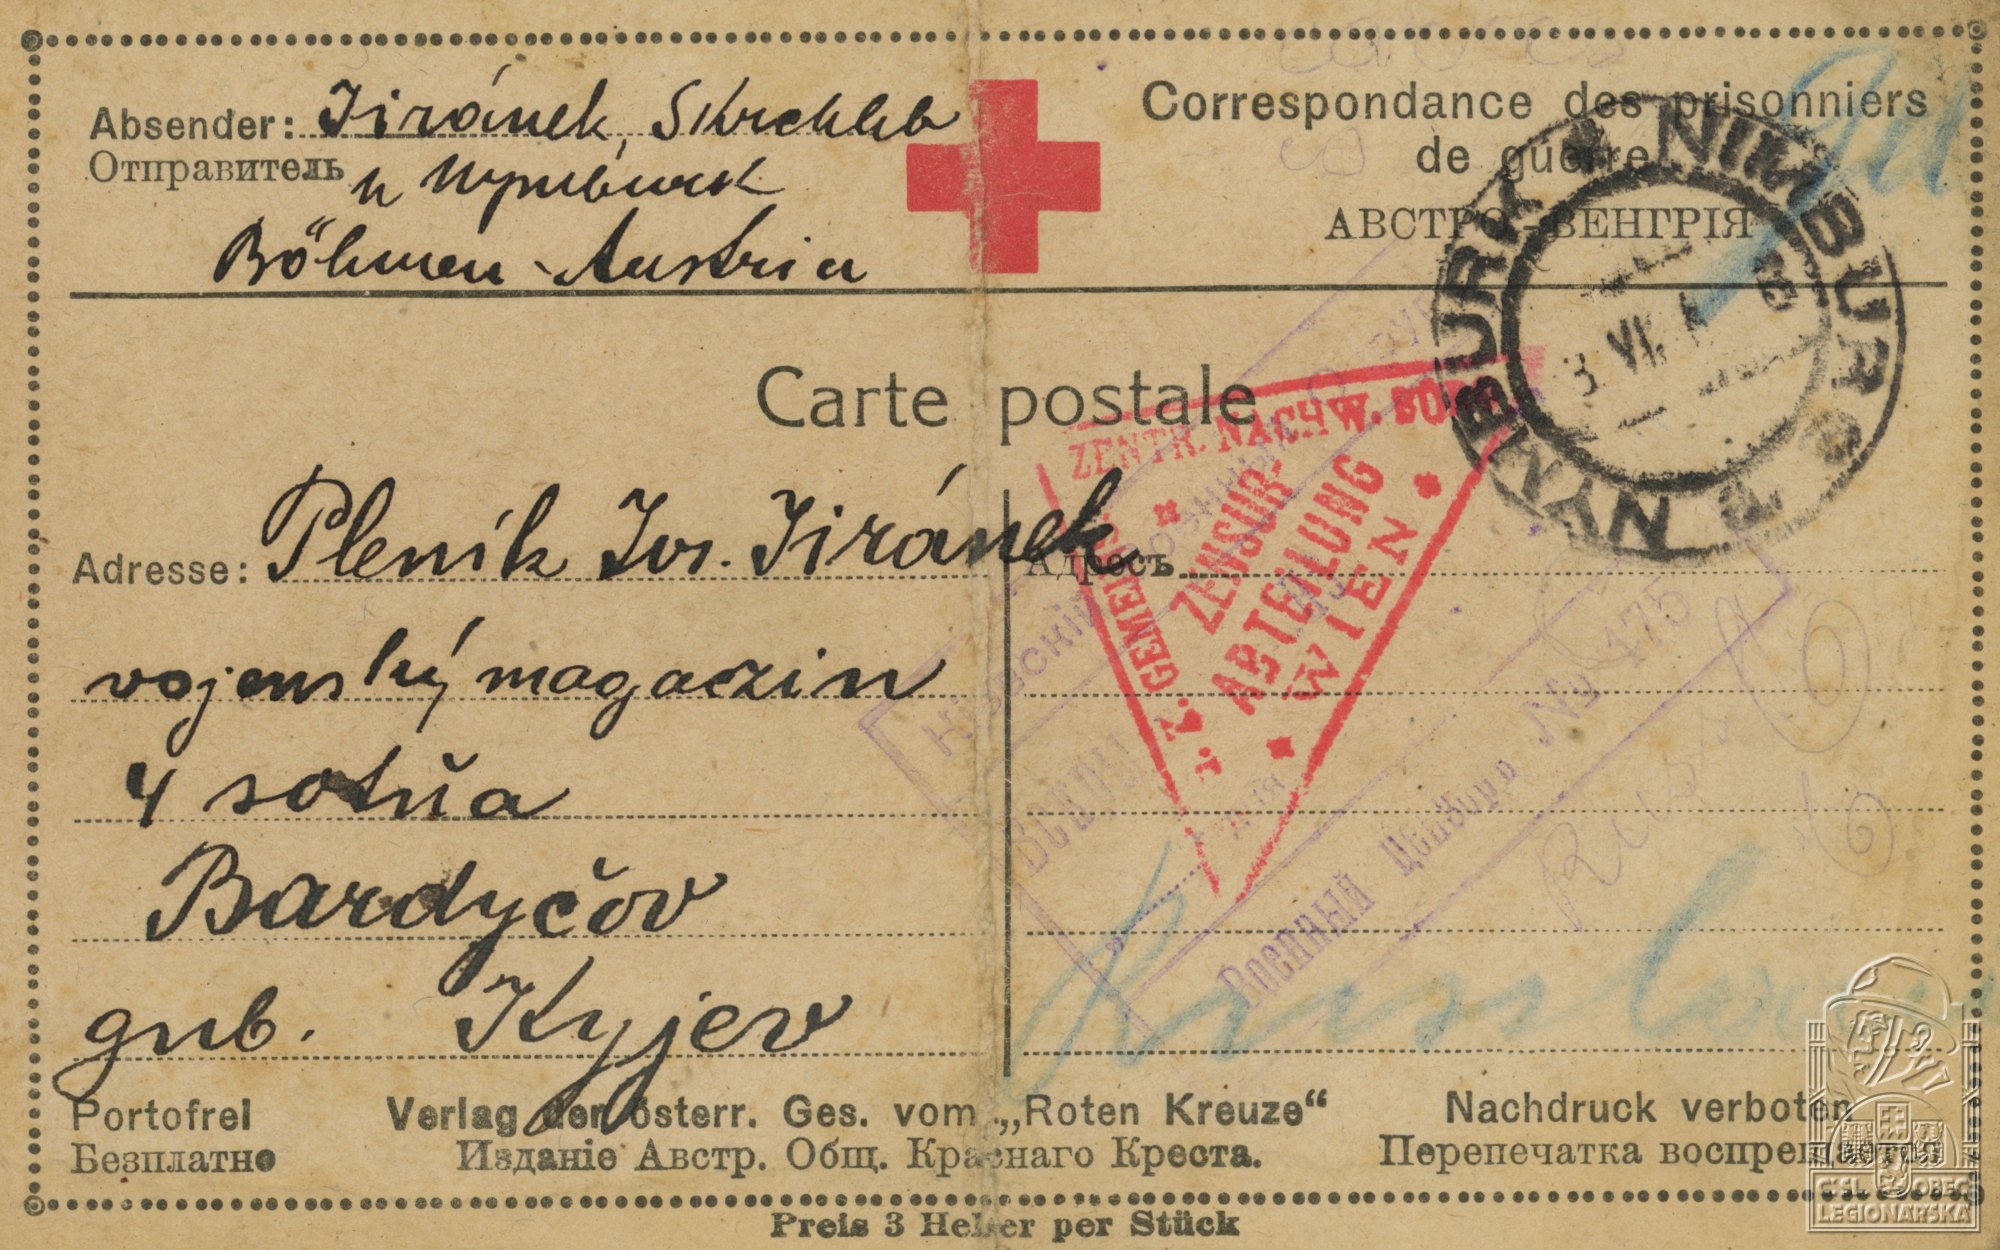 Absender: Jiránek, Skrchleb
Отправитель u Nymburck
Böhmen - Austria
Correspondance des prisonniers
de guerre
АВСТРО-ВЕНГРІЯ
NIMBURG
NYMBURK
3 VII
Carte postale
ZENTR. NACHW. BUREAU
ZENSUR-
ABTEILUNG
WIEN
GEMEINS.
Adresse: Pleník Jos. Jiránek
Адресъ
vojenský magazin
4 sotňa
Bardyčov
gub. Kyjev
Военный Цензоръ № 175
Russland
Portofrei
Безплатно
Verlag der österr. Ges. vom „Roten Kreuze“
Изданіе Австр. Общ. Краснаго Креста.
Nachdruck verboten
Перепечатка воспрещается
Preis 3 Heller per Stück
ČSL. OBEC
LEGIONÁŘSKÁ